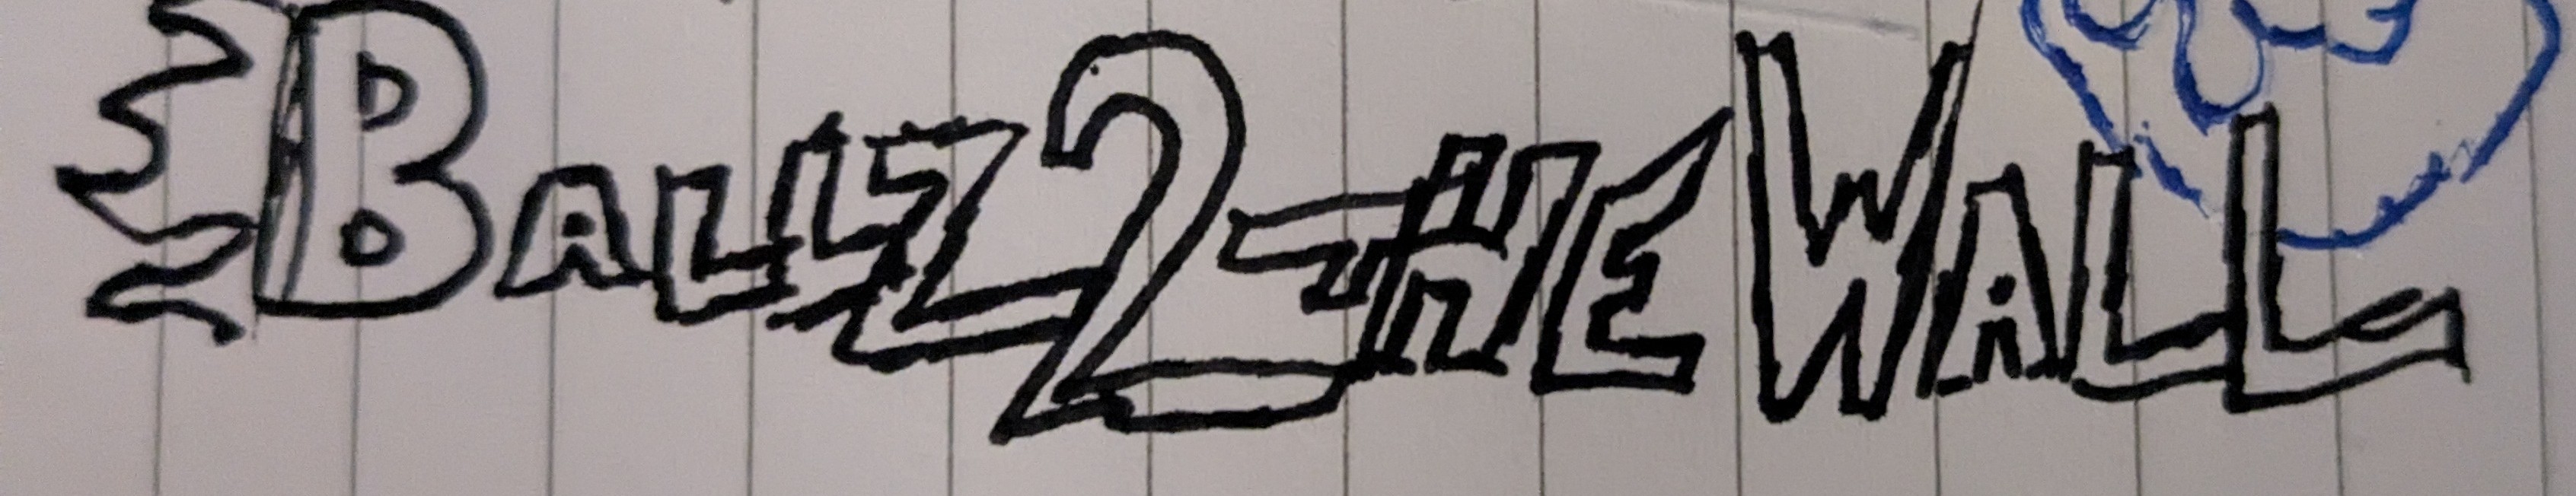 BALLZ 2 THE WALL